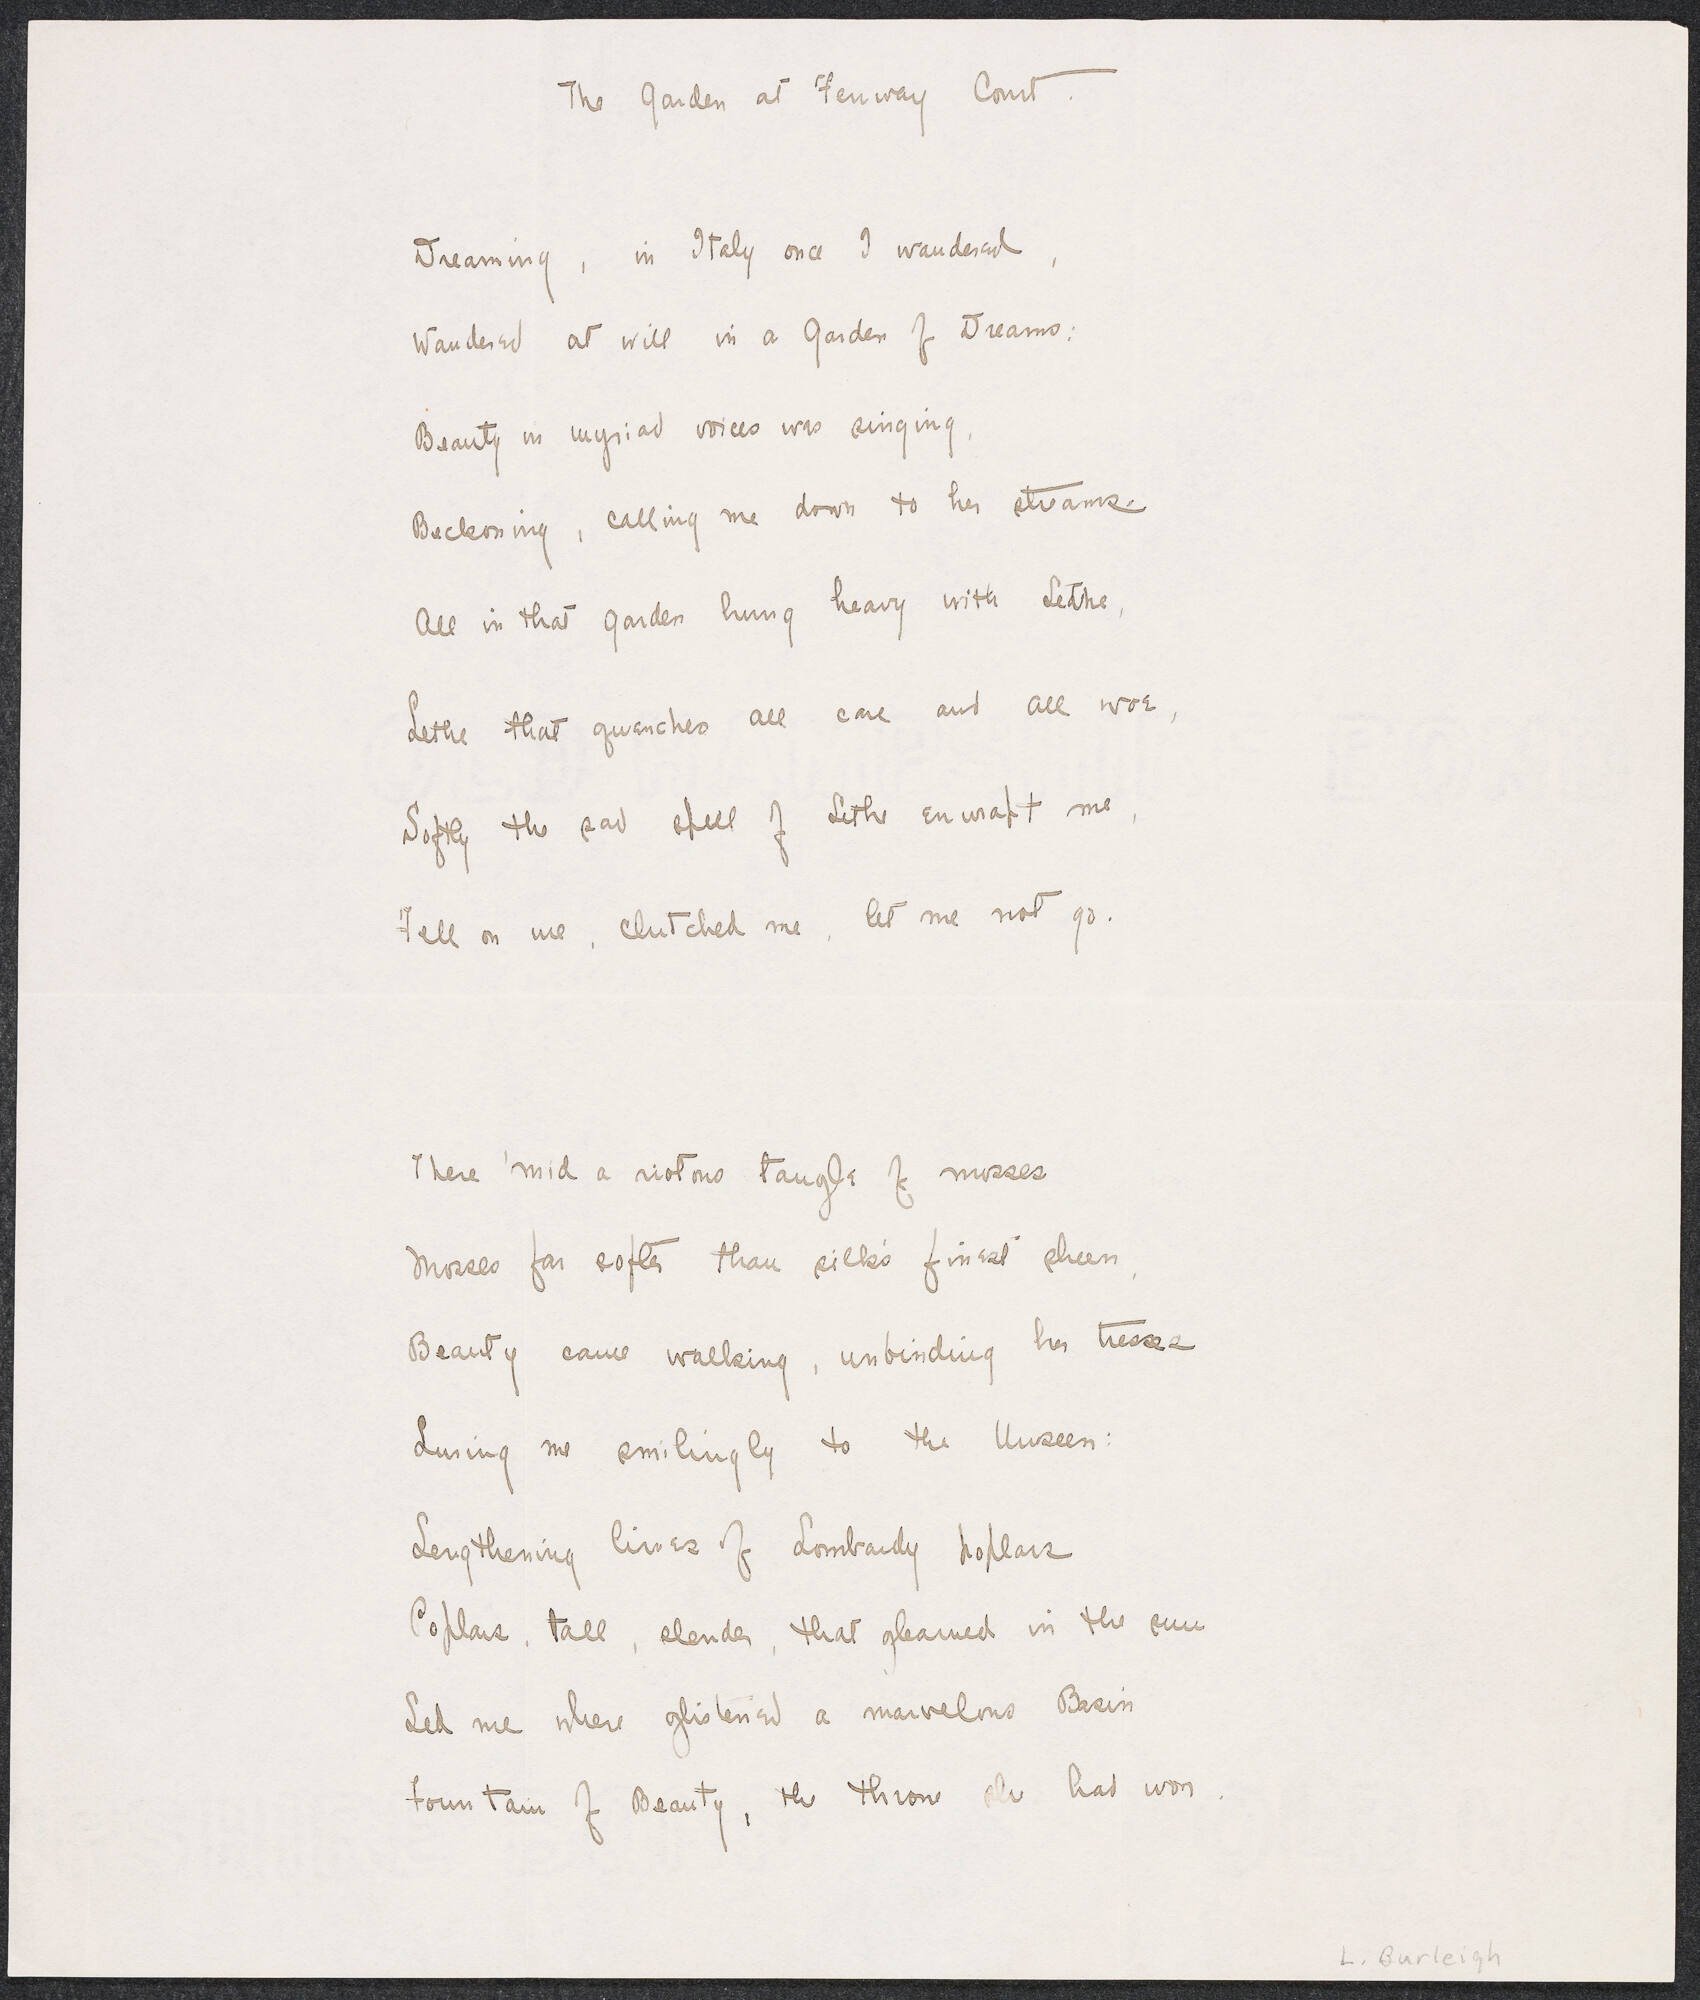 The Garden at Fenway Court.
Dreaming, in Italy once I wandered,
Wandered at will in a Garden of Dreams:
Beauty in myriad voices was singing,
Beckoning, calling me down to her streams.
All in that garden hung heavy with Lethe,
Lethe that quenches all care and all woe,
Softly the sad spell of Lethe enwrapt me,
Fell on me, clutched me, let me not go.
There 'mid a riotous tangle of mosses
Mosses far softer than silk's finest sheen,
Beauty came walking, unbinding her tresses
Luring me smilingly to the Unseen:
Lengthening lines of Lombardy poplars
Poplars, tall, slender, that gleamed in the sun
Led me where glistened a marvelous Basin
Fountain of Beauty, the throne she had won.
L. Burleigh